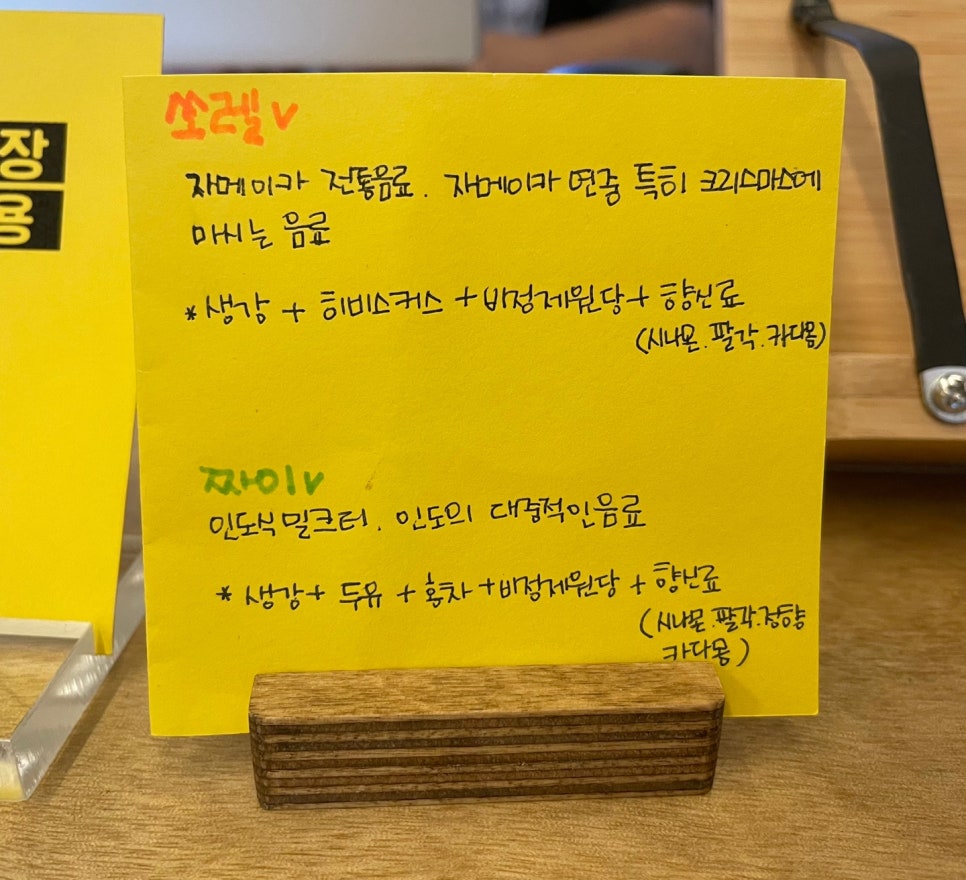 장
용
쏘렐v
자메이카 전통음료. 자메이카 연중 특히 크리스마스에
마시는 음료
*생강 + 히비스커스 + 비정제원당 + 향신료
(시나몬.팔각.카다몸)
짜이v
인도식밀크티. 인도의 대중적인음료
* 생강 + 두유 + 홍차 + 비정제원당 + 향신료
(시나몬.팔각.정향
카다몽)